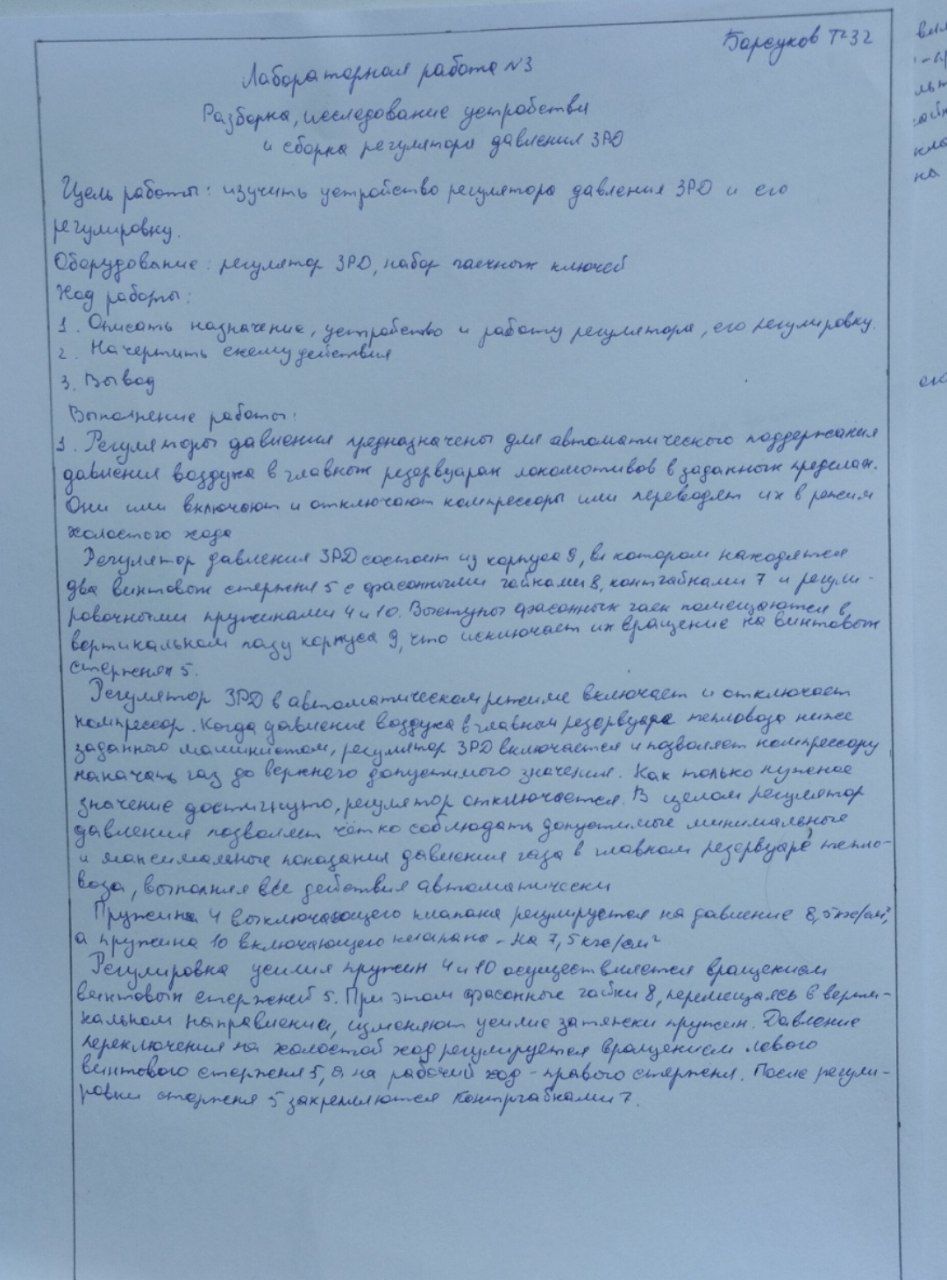 Барсуков Т-32
Лабораторная работа №3
Разборка, исследование устройства
и сборка регулятора давления 3РД
Цель работы: изучить устройство регулятора давления 3РД и его
регулировку.
Оборудование: регулятор 3РД, набор гаечных ключей
Ход работы:
1. Описать назначение, устройство и работу регулятора, его регулировку.
2. Начертить схему действия
3. Вывод
Выполнение работы:
1. Регуляторы давления предназначены для автоматического поддержания
давления воздуха в главных резервуарах локомотивов в заданных пределах.
Они или включают и отключают компрессоры или переводят их в режим
холостого хода
Регулятор давления 3РД состоит из корпуса 9, в котором находятся
два винтовых стержня 5 с фасонными гайками 8, контгайками 7 и регули-
ровочными пружинами 4 и 10. Выступы фасонных гаек помещаются в
вертикальном пазу корпуса 9, что исключает их вращение на винтовых
стержнях 5.
Регулятор 3РД в автоматическом режиме включает и отключает
компрессор. Когда давление воздуха в главном резервуаре тепловоза ниже
заданного машинистом, регулятор 3РД включается и позволяет компрессору
накачать газ до верхнего допустимого значения. Как только нужное
значение достигнуто, регулятор отключается. В целом регулятор
давления позволяет чётко соблюдать допустимые минимальные
и максимальные показания давления газа в главном резервуаре тепло-
воза, выполняя все действия автоматически
Пружина 4 выключающего клапана регулируется на давление 8,5кгс/см²,
а пружина 10 включающего клапана - на 7,5кгс/см²
Регулировка усилия пружин 4 и 10 осуществляется вращением
винтовых стержней 5. При этом фасонные гайки 8, перемещаясь в верти-
кальном направлении, изменяют усилие затяжки пружин. Давление
переключения на холостой ход регулируется вращением левого
винтового стержня 5, а на рабочий ход - правого стержня. После регули-
ровки стержня 5 закрепляются контргайками 7.